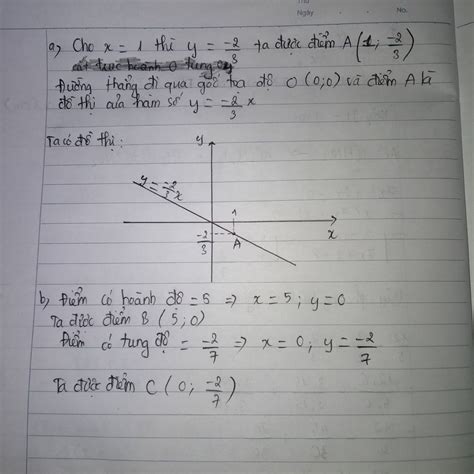 Thứ
Ngày No.
a, Cho x = 1 thì y = -2/3 ta được điểm A (1; -2/3)
cắt trục hoành 0 tung 0y
Đường thẳng đi qua gốc tọa độ O (0;0) và điểm A là
đồ thị của hàm số y = -2/3 x
Ta có đồ thị:
y
y = -2/3 x
1
-2/3
A
x
b, Điểm có hoành độ = 5 => x = 5; y = 0
Ta được điểm B (5; 0)
Điểm có tung độ = -2/7 => x = 0; y = -2/7
Ta được điểm C (0; -2/7)